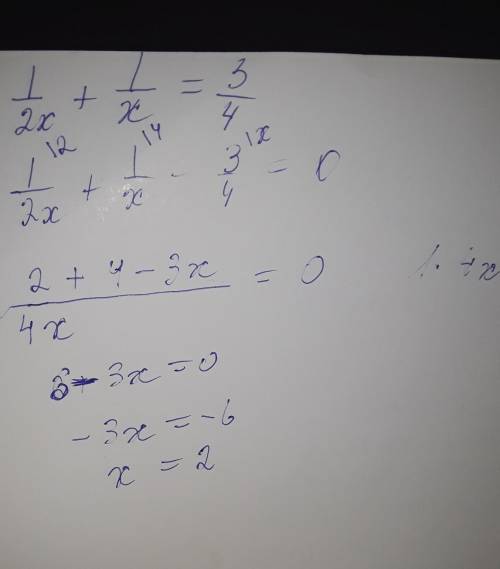 1/2x + 1/x = 3/4
1/2x \2 + 1/x \4 - 3/4 \x = 0
2 + 4 - 3x / 4x = 0
6 - 3x = 0
-3x = -6
x = 2